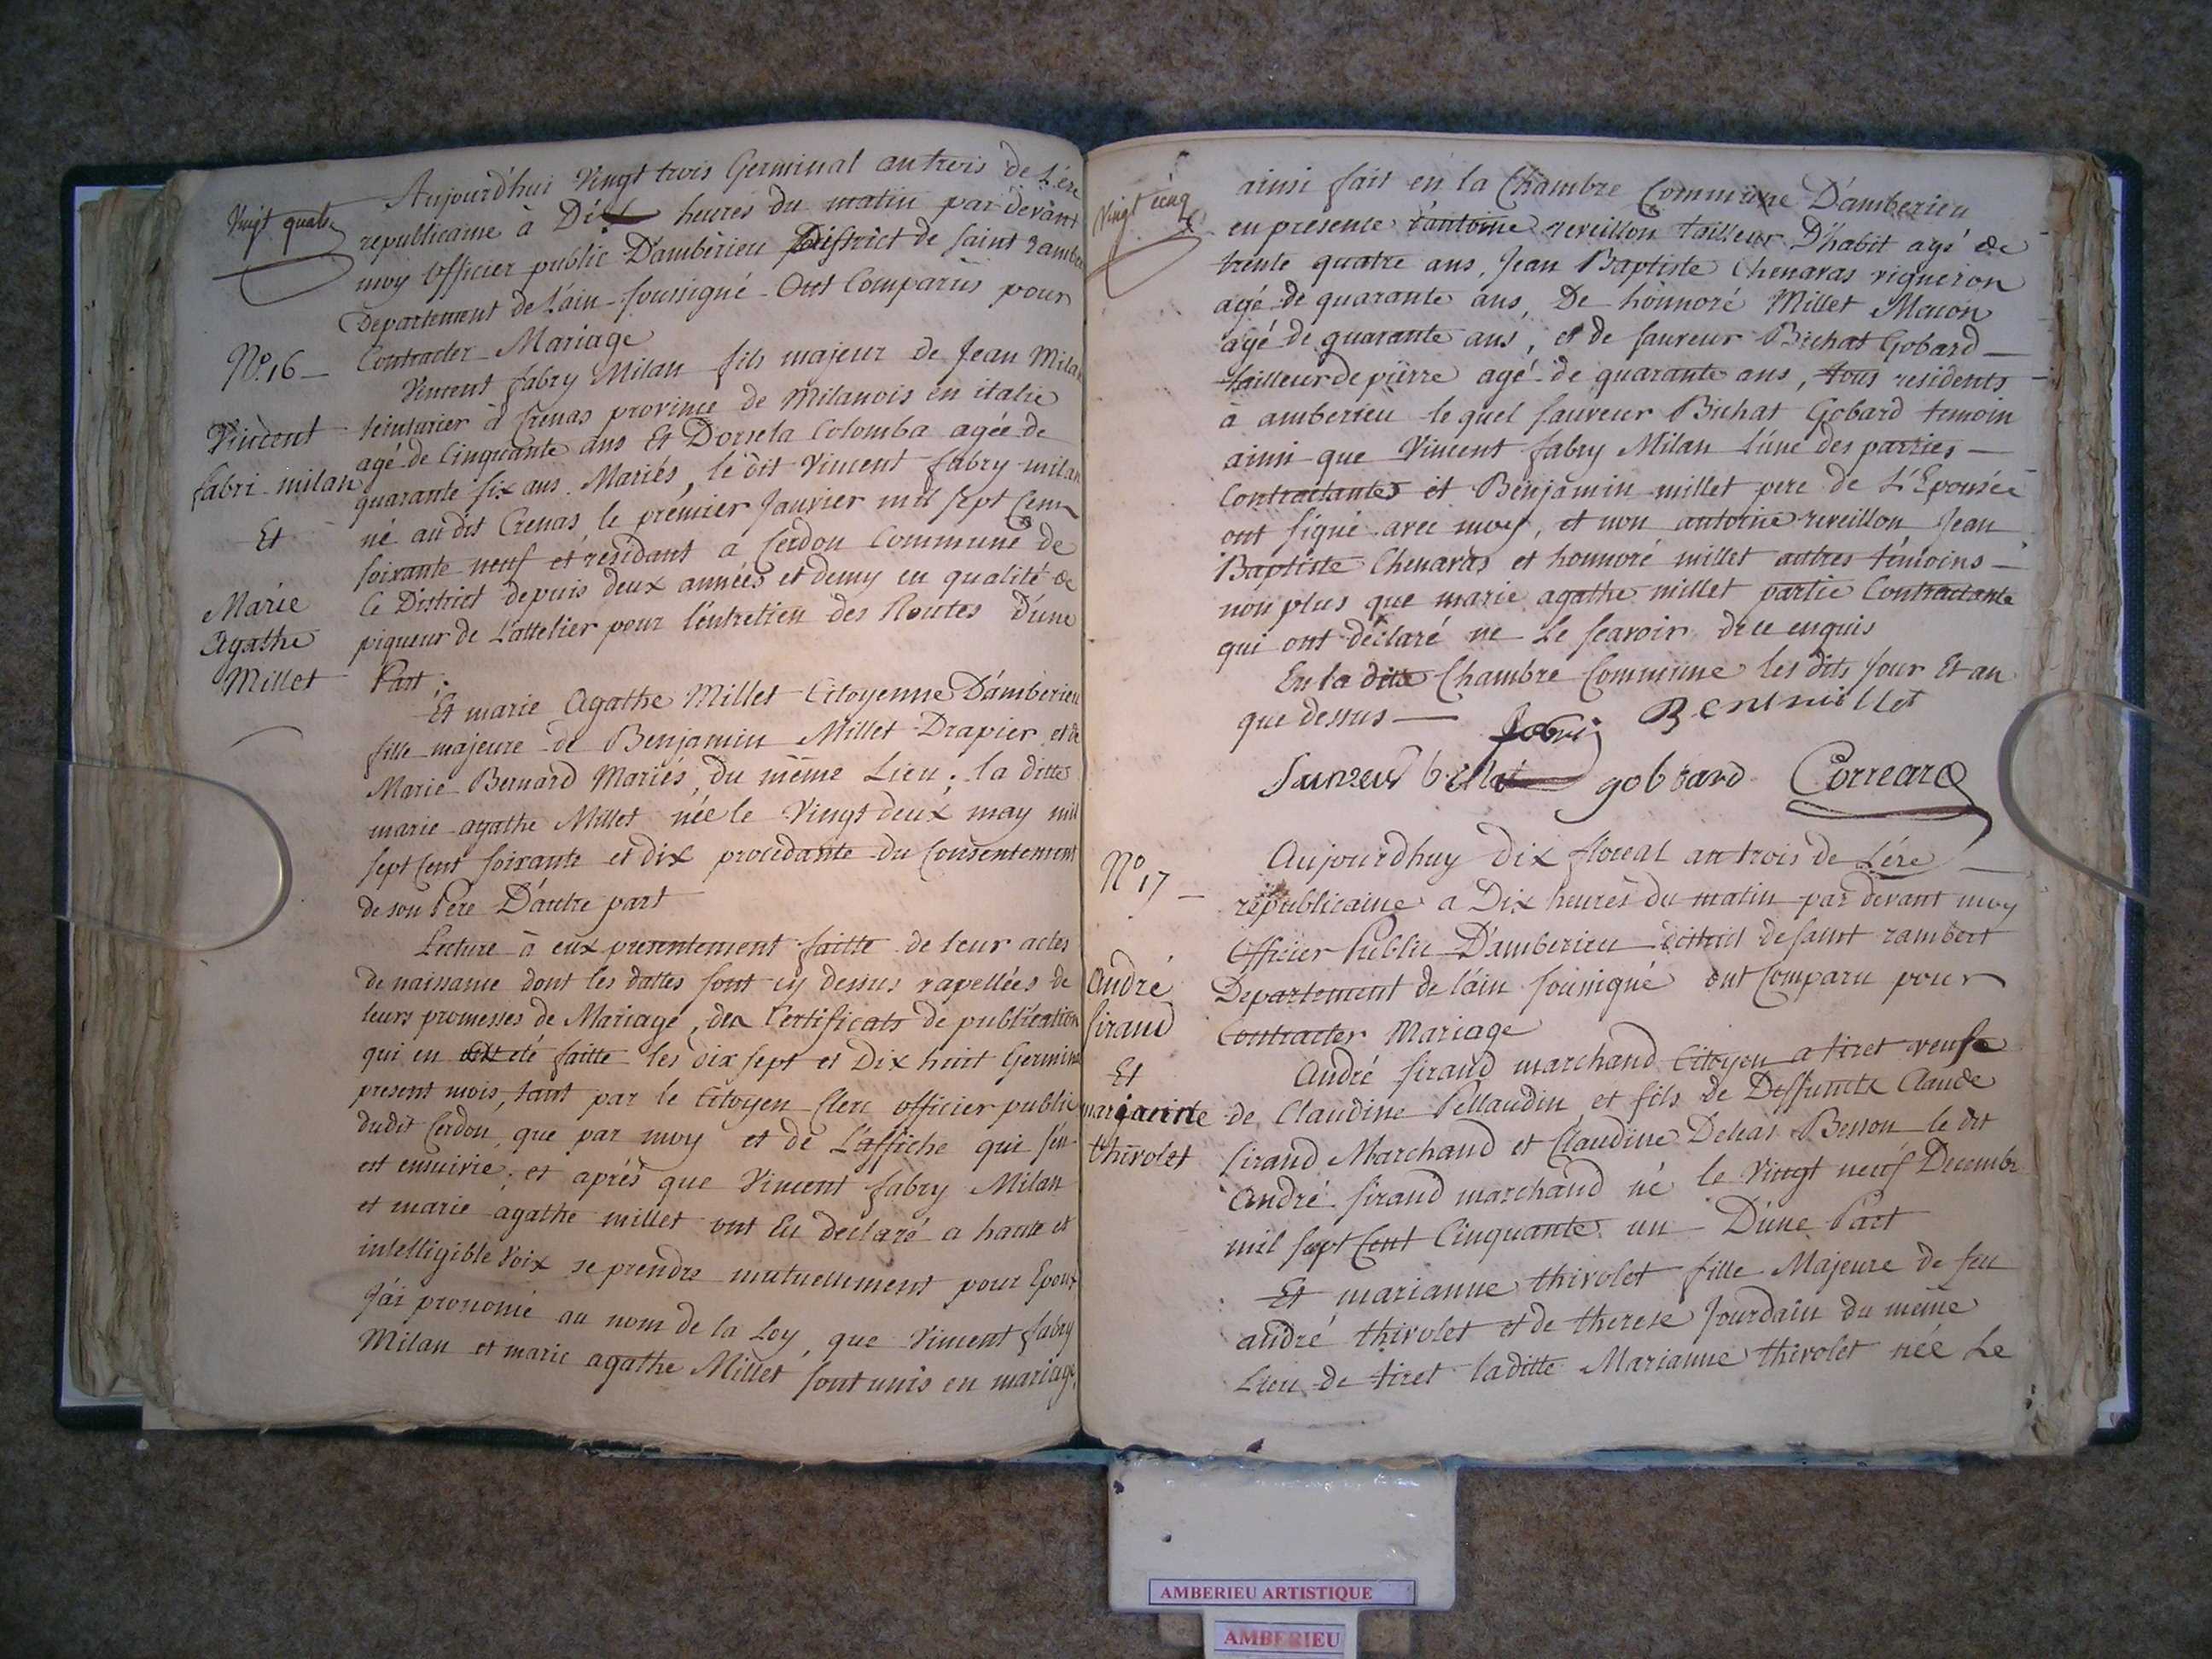 Vingt quatre
Aujourd'hui Vingt trois Germinal an trois de L'ère
republicaine à Dix heures du matin par devant
moy Officier public D'amberieu District de saint rambe
Departement de L'ain soussigné Ont Comparus pour
Contracter Mariage
No. 16
Vincent
fabri milan
Et
Marie
Agathe
Millet
Vincent fabry Milan fils majeur de Jean Milan
teinturier à Crenas province de Milanois en italie
agé de Cinquante ans Et Dorseta Colomba agée de
quarante six ans Mariés, le dit Vincent fabry milan
né au dit Crenas le prémier Janvier mil sept Cent
soixante neuf et résidant a Cerdon Commune de
Ce District depuis deux années et demy en qualité de
piqueur de L'attelier pour l'entretien des Routes D'une
Part.
Et marie Agathe Millet Citoyenne D'amberieu
fille majeure de Benjamin Millet Drapier et de
Marie Bernard Mariés, du même Lieu. la ditte
marie agathe Millet née le Vingt deux may mil
sept Cent soixante et dix procedante du Consentement
de son Père D'autre part
Lecture à eux presentement faitte de leur actes
de naissance dont les dattes sont cy dessus rapellées de
leurs promesses de Mariage, des Certificats de publication
qui en été faitte les dix sept et Dix huit Germinal
present mois, tant par le Citoyen Clerc officier public
dudit Cerdon, que par moy et de L'affiche qui s'en
est ensuivie; et après que Vincent fabry Milan
et marie agathe millet ont Eu declaré a haute et
intelligible Voix se prendre mutuellement pour Epoux
J'ai prononcé au nom de la Loy, que Vincent fabry
Milan et marie agathe Millet sont unis en mariage,
Vingt cinq
ainsi fait en la Chambre Commune D'amberieu
en presence d'antoine reveillon tailleur D'habit agé de
trente quatre ans, Jean Baptiste Chenavas vigneron
agé de quarante ans, De honnoré Millet Macon
agé de quarante ans, et de sauveur Bichat Gobard
tailleur de pierre agé de quarante ans, tous residents
à amberieu lequel sauveur Bichat Gobard temoin
ainsi que Vincent fabry Milan l'une des parties
Contractantes et Benjamin millet pere de L'Epousée
ont signé avec moy, et non antoine reveillon Jean
Baptiste Chenavas et honnoré millet autres témoins
non plus que marie agathe millet partie Contractante
qui ont déclaré ne Le scavoir de ce enquis
En la ditte Chambre Commune les dits Jour Et an
que dessus
fabri Ben millet
gobbard Correard
No. 17
André
sirand
Et
marianne
thivolet
Aujourdhuy dix floreal an trois de L'ére
républicaine a Dix heures du matin par devant moy
Officier Public D'amberieu district de saint rambert
Departement de l'ain soussigné ont Comparu pour
Contracter Mariage
André sirand marchand Citoyen a tiret veuf
de Claudine Pellaudin et fils de Deffuncts Claude
sirand Marchand et Claudine Besson le dit
André sirand marchand né le Vingt neuf Decembre
mil sept Cent Cinquante un D'une Part
Et marianne thivolet fille Majeure de feu
andré thivolet et de therese Jourdain du même
Lieu de tiret laditte Marianne thivolet née Le
AMBERIEU ARTISTIQUE
AMBERIEU